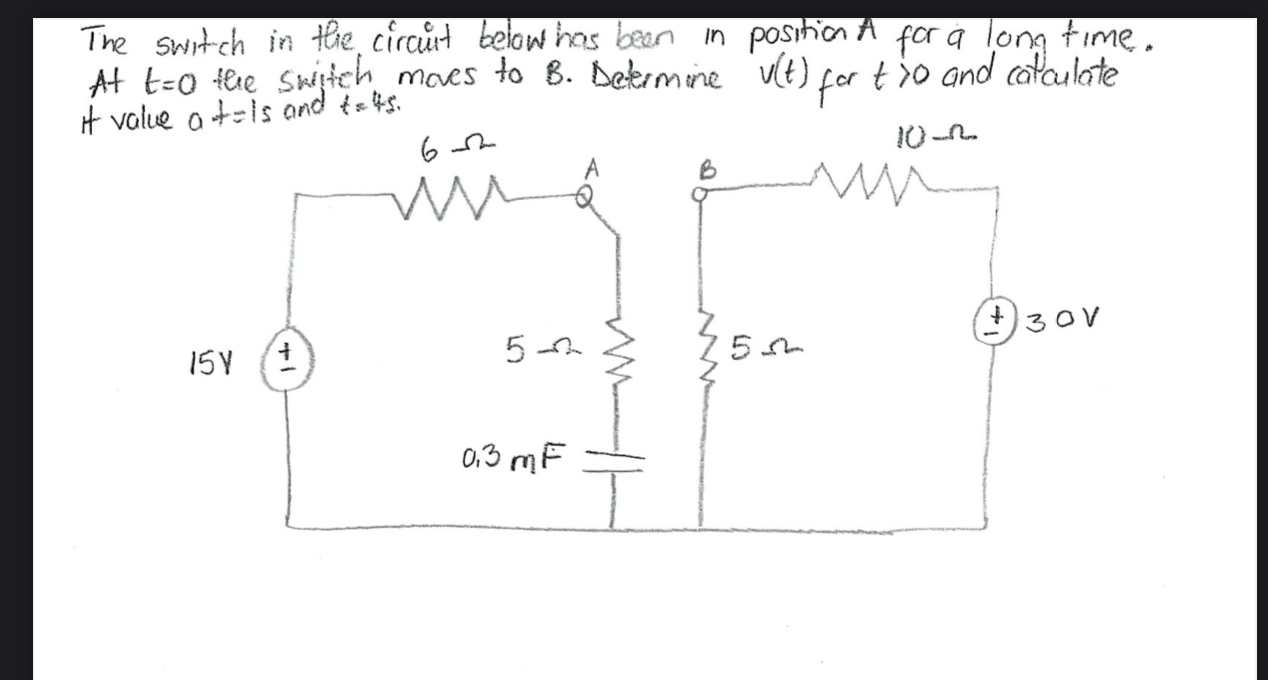 The switch in the circuit below has been in position A for a long time.
At t=0 the switch moves to B. Determine v(t) for t>0 and calculate
it value at=1s and t=4s.
6 Ω
10 Ω
A
B
15V
+
-
5 Ω
5 Ω
+
-
30V
0,3 mF